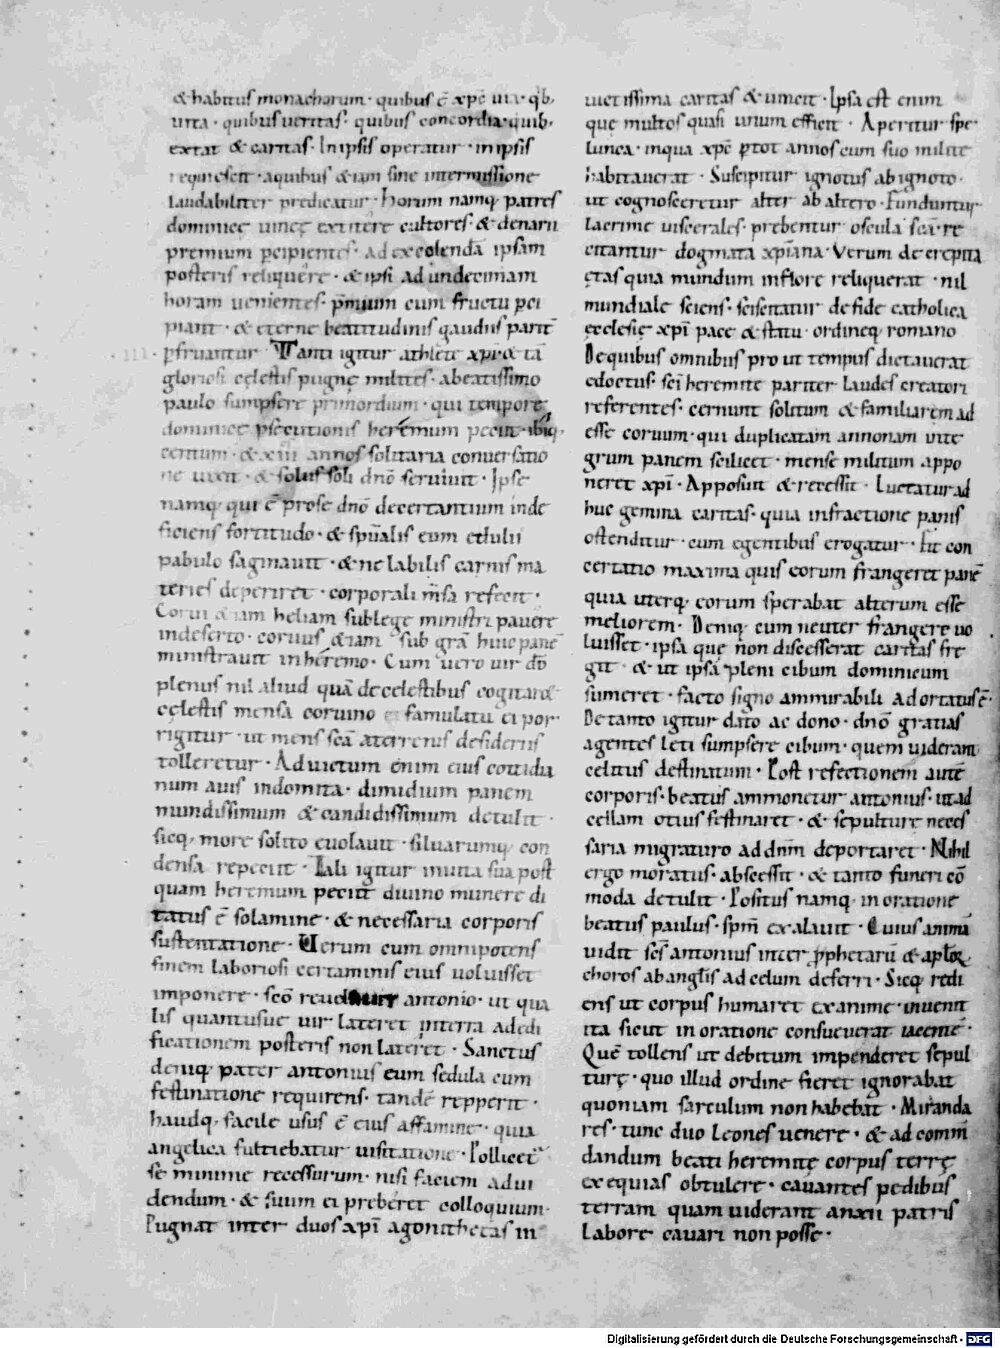 & habitus monachorum · quibus ē xp̄c uia · qb;
uita · quibus ueritas · quibus concordia · quib;
extat & caritas · In ipsis operatur · in ipsis
requiescit · a quibus etiam sine intermissione
laudabiliter predicatur · Horum namq; patres
dominicę uineę extitere cultores · & denarii
premium p̄cipientes · ad excolendā ipsam
posteris reliquere · & ipsi ad undecimam
horam uenientes · p̄mium cum fructu p̄ci
piant · & eterne beatitudinis gaudiis parit̄
p̄fruantur · Tanti igitur athletę xp̄i & tā
gloriosi cęlestis pugnę milites · a beatissimo
paulo sumpsere primordium · qui tempore
dominicę p̄secutionis heremum peciit · ibiq;
centum · & xiii annos solitaria conuersatio
ne uixit · & solus soli dn̄o seruiuit · Ipse
namq; qui ē pro se dn̄o decertantium inde
ficiens fortitudo · & sp̄ualis eum edulii
pabulo saginauit · & ne labilis carnis ma
teries deperiret · corporali m̄sa refecit ·
Corui etiam heliam sub lege ministri pauere
in deserto · coruus etiam sub grā huic panē
ministrauit in heremo · Cum uero uir dō
plenus nil aliud quā de celestibus cogitaret
cęlestis mensa coruino famulatu ei por
rigitur · ut mens scā a terrenis desideriis
tolleretur · Ad uictum enim eius cottidia
num auis indomita · dimidium panem
mundissimum & candidissimum detulit ·
sicq; more solito euolauit · siluarumq; con
densa repeciit · Tali igitur inuita sua post
quam heremum peciit diuino munere di
tatus ē solamine · & necessaria corporis
sustentatione · Uerum cum omnipotens
finem laboriosi certaminis eius uoluisset
imponere · scō reuelauit antonio · ut qua
lis quantusue uir lateret in terra ad edi
ficationem posteris non lateret · Sanctus
deniq; pater antonius cum sedula eum
festinatione requirens · tandē repperit ·
haudq; facile usus ē eius affamine · quia
angelica fultiebatur uisitatione · Pollicet̄
se minime recessurum · nisi faciem ad ui
dendum · & suum ei preberet colloquium ·
Pugnat inter duos xp̄i agonithetas in
uictissima caritas & uincit · Ipsa est enim
que multos quasi unum efficit · Aperitur spe
lunca · in qua xp̄c p̄ tot annos cum suo milite
habitauerat · Suscipitur ignotus ab ignoto ·
ut cognosceretur alter ab altero · Funduntur
lacrime uiscerales · prebentur oscula scā · re
citantur dogmata xp̄iana · Verum de crepita
ętas quia mundum in flore reliquerat · nil
mundiale sciens · sciscitatur de fide catholica
ecclesię xp̄i pace & statu · ordineq; romano
De quibus omnibus pro ut tempus dictauerat
edoctus · sc̄i heremite pariter laudes creatori
referentes · cernunt solitum & familiarem ad
esse coruum · qui duplicatam annonam uite
grum panem scilicet · mense militum appo
neret xp̄i · Apposuit & recessit · Luctatur ad
huc gemina caritas · quia in fractione panis
ostenditur · cum egentibus erogatur · Fit con
certatio maxima quis eorum frangeret panē
quia uterq; eorum sperabat alterum esse
meliorem · Deniq; cum neuter frangere uo
luisset · ipsa que non discesserat caritas fre
git · & ut ipsā pleni cibum dominicum
sumeret · facto signo ammirabili adortatus ē ·
De tanto igitur dato ac dono · dn̄o gratias
agentes leti sumpsere cibum · quem uiderant
celitus destinatum · Post refectionem autē
corporis · beatus ammonetur antonius · ut ad
cellam otius festinaret · & sepulture neces
saria migraturo ad dn̄m deportaret · Nihil
ergo moratus · abscessit · & tanto funeri cō
moda detulit · Positus namq; in oratione
beatus paulus · sp̄m exalauit · Cuius animā
uidit sc̄s antonius inter p̄phetarū & apl̄oꝝ
choros ab angl̄is ad celum deferri · Sicq; redi
ens ut corpus humaret exanime · inuenit
ita sicut in oratione consueuerat iacente ·
Quē tollens ut debitum impenderet sepul
turę · quo illud ordine fieret ignorabat
quoniam sarculum non habebat · Miranda
res · tunc duo leones uenere · & ad comm̄
dandum beati heremitę corpus terrę
exequias obtulere · cauantes pedibus
terram quam uiderant anxii patris
labore cauari non posse ·
Digitalisierung gefördert durch die Deutsche Forschungsgemeinschaft - DFG